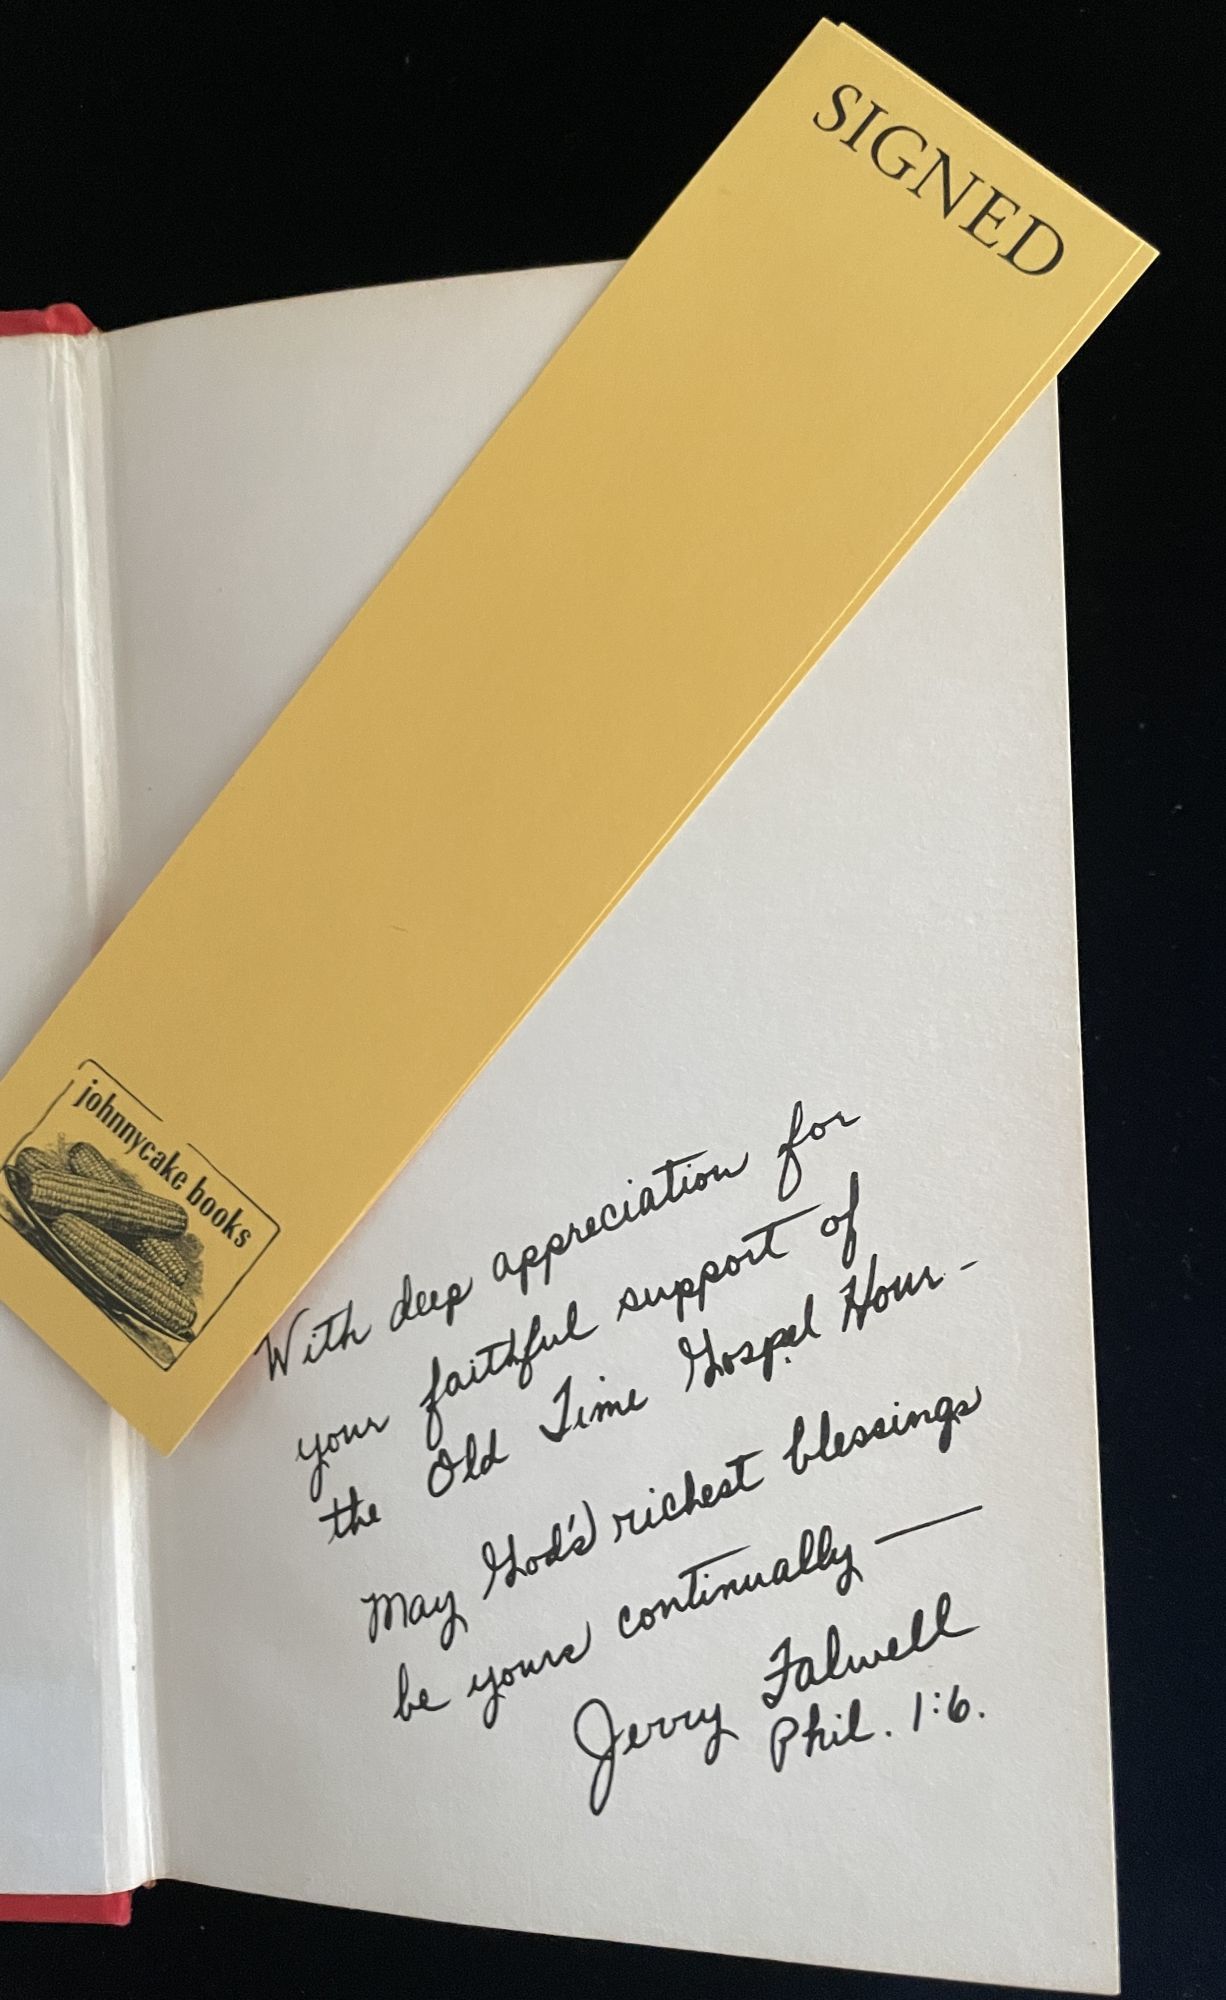 SIGNED
johnnycake books
With deep appreciation for
your faithful support of
the Old Time Gospel Hour -
May God's richest blessings
be yours continually —
Jerry Falwell
Phil. 1:6.